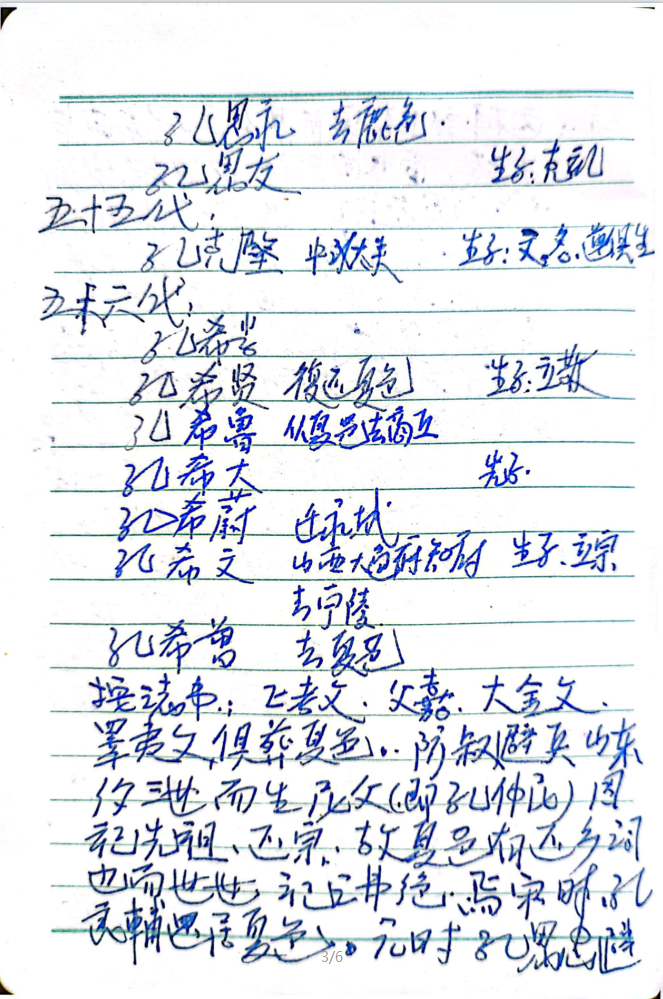 孔思永 去鹿邑.
孔思友 生子:克礼
五十五代:
孔克 生子:文.名.
五十六代:
孔希
孔希贤 復还夏邑 生子:立敬
孔希鲁 从夏邑去商丘
孔希大 先子.
孔希蔚 迁永城
孔希文 山西大同府知府 生子:立宗
去宁陵
孔希曾 去夏邑
按志书.:正考文.父嘉.大金文.
睪夷文俱葬夏邑..防叔避兵山东
後三世而生尼父(即孔仲尼)因
祀先祖、还宗、故夏邑有还乡祠
也而世世祀焉.宋时.孔
良輔思居夏邑。元时孔思忠避
3/6